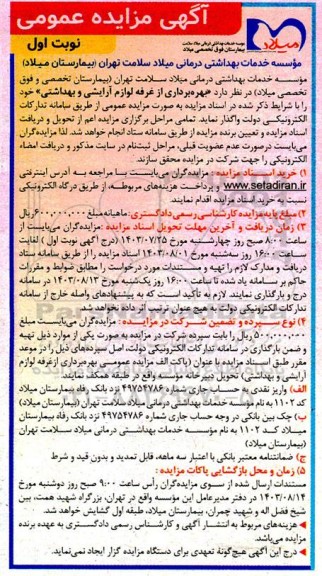 آگهی مزایده عمومی
نوبت اول
میلاد
موسسه خدمات بهداشتی درمانی میلاد سلامت
بیمارستان فوق تخصصی میلاد
مؤسسه خدمات بهداشتی درمانی میلاد سلامت تهران (بیمارستان میلاد)
مؤسسه خدمات بهداشتی درمانی میلاد سلامت تهران (بیمارستان تخصصی و فوق
تخصصی میلاد) در نظر دارد «بهره‌برداری از غرفه لوازم آرایشی و بهداشتی» خود
را با شرایط ذکر شده در اسناد مزایده به صورت مزایده عمومی از طریق سامانه تدارکات
الکترونیکی دولت واگذار نماید. تمامی مراحل برگزاری مزایده اعم از تحویل و دریافت
اسناد مزایده و تعیین برنده مزایده از طریق سامانه ستاد انجام خواهد شد. لذا مزایده‌گران
می‌بایست درصورت عدم عضویت قبلی، مراحل ثبت‌نام در سایت مذکور و دریافت امضاء
الکترونیکی را جهت شرکت در مزایده محقق سازند.
۱) خرید اسناد مزایده : مزایده‌گران می‌بایست با مراجعه به آدرس اینترنتی
www.setadiran.ir و پرداخت هزینه‌های مربوطه، از طریق درگاه الکترونیکی
نسبت به خرید اسناد مزایده اقدام نمایند.
۲) مبلغ پایه مزایده کارشناسی رسمی دادگستری: ماهیانه مبلغ ۶۰۰,۰۰۰,۰۰۰ ریال
۳) زمان دریافت و آخرین مهلت تحویل اسناد مزایده : مزایده‌گران می‌بایست از
ساعت ۸:۰۰ صبح روز چهارشنبه مورخ ۱۴۰۳/۰۷/۲۵ (درج آگهی نوبت اول) لغایت
ساعت ۱۶:۰۰ روز سه‌شنبه مورخ ۱۴۰۳/۰۸/۰۱ اسناد مزایده را از طریق سامانه ستاد
دریافت و مدارک لازم را تهیه و مستندات مورد درخواست را مطابق ضوابط و مقررات
حاکم بر سامانه یاد شده تا ساعت ۱۶:۰۰ روز یک‌شنبه مورخ ۱۴۰۳/۰۸/۱۳ در سامانه
درج و بارگذاری نمایند. لازم به تأکید است که به پیشنهادهای واصله خارج از سامانه
تدارکات الکترونیکی دولت، به هیچ عنوان ترتیب اثر داده نخواهد شد.
۴) نوع سپرده و تضمین شرکت در مزایده : مزایده‌گران می‌بایست مبلغ
۵۰۰,۰۰۰,۰۰۰ ریال را بابت سپرده شرکت در مزایده به صورت یکی از موارد ذیل تهیه
و ضمن بارگذاری در سامانه تدارکات الکترونیکی دولت، اصل سپرده‌های ذیل را در موعد
مقرر طبق اسناد مزایده با عنوان (پاکت الف مزایده عمومی بهره‌برداری ازغرفه لوازم
آرایشی و بهداشتی) تحویل دبیرخانه مؤسسه واقع در طبقه همکف نمایند.
الف) واریز نقدی به حساب جاری شماره ۴۹۷۵۴۷۸۶ نزد بانک رفاه بیمارستان میلاد
کد ۱۱۰۲ به نام مؤسسه خدمات بهداشتی درمانی میلاد سلامت تهران (بیمارستان میلاد)
ب) چک بین بانکی در وجه حساب جاری شماره ۴۹۷۵۴۷۸۶ نزد بانک رفاه بیمارستان
میلاد کد ۱۱۰۲ به نام مؤسسه خدمات بهداشتی درمانی میلاد سلامت تهران
(بیمارستان میلاد)
ج) ضمانتنامه معتبر بانکی با اعتبار سه ماهه، قابل تمدید و بدون قید و شرط
۵) زمان و محل بازگشایی پاکات مزایده :
مستندات ارسال شده از سوی مزایده‌گران رأس ساعت ۹:۰۰ صبح روز دوشنبه مورخ
۱۴۰۳/۰۸/۱۴ در دفتر مدیرعامل این مؤسسه واقع در تهران، بزرگراه شهید همت، بین
شیخ فضل اله و شهید چمران، بیمارستان میلاد، طبقه اول گشایش خواهد شد.
هزینه‌های مربوط به انتشار آگهی و کارشناس رسمی دادگستری به عهده برنده
مزایده می‌باشد.
درج این آگهی هیچ‌گونه تعهدی برای دستگاه مزایده گزار ایجاد نمی‌نماید.